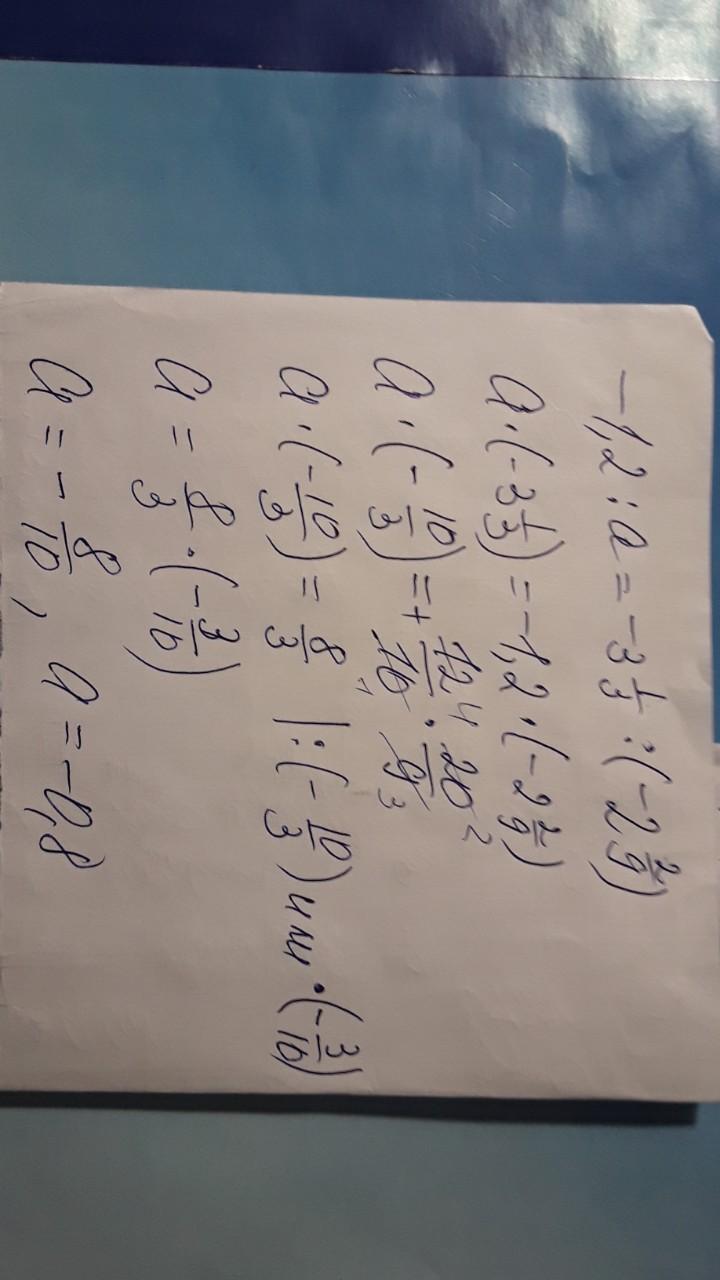 -1,2 : a = -3 1/3 : (-2 2/9)
a · (-3 1/3) = -1,2 · (-2 2/9)
a · (-10/3) = + 12 4/10 1 · 20 2/9 3
a · (-10/3) = 8/3 | : (-10/3) или · (-3/10)
a = 8/3 · (-3/10)
a = -8/10, a = -0,8